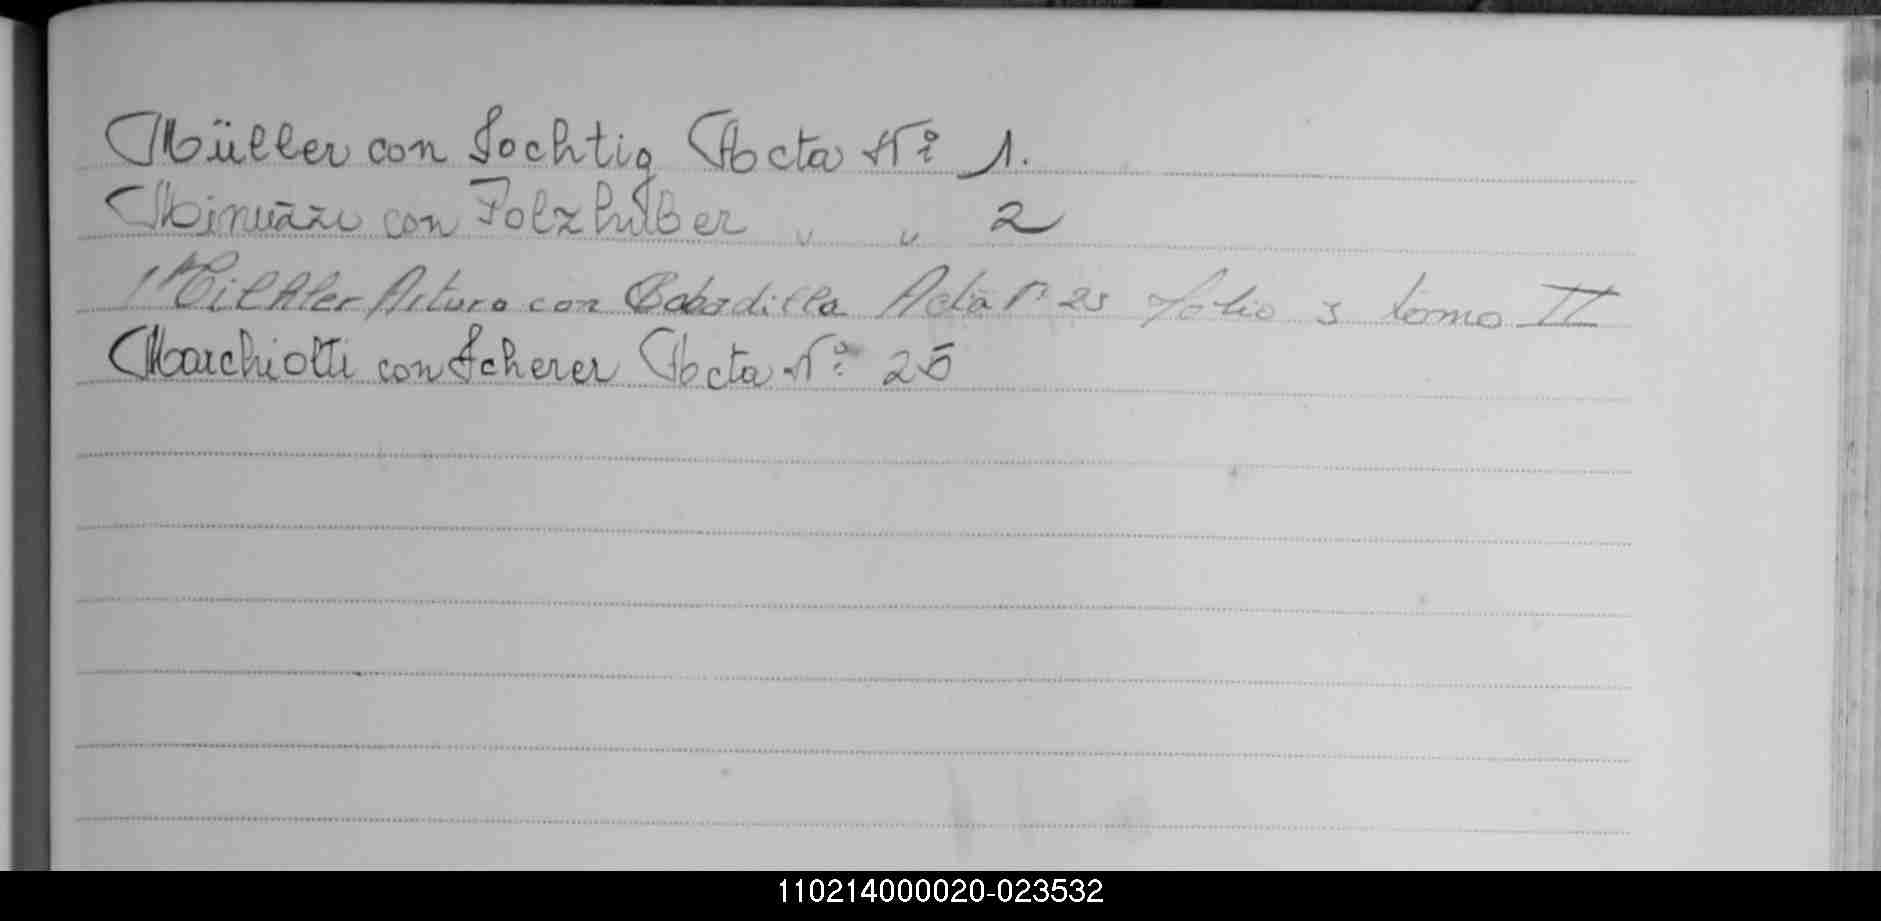 Müller con Sochtig Acta Nº 1.
con Folzhuber " " 2
Arturo con Bobadilla Acta Nº 25 folio 3 tomo II
Marchiotti con Scherer Acta Nº 25
110214000020-023532